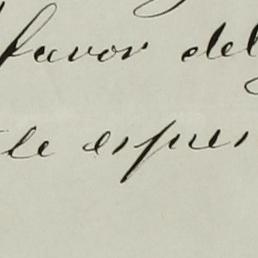 favor del
le esper